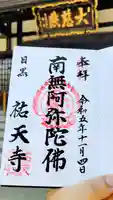 奉拝
令和五年十一月四日
南無阿弥陀佛
目黒
祐天寺